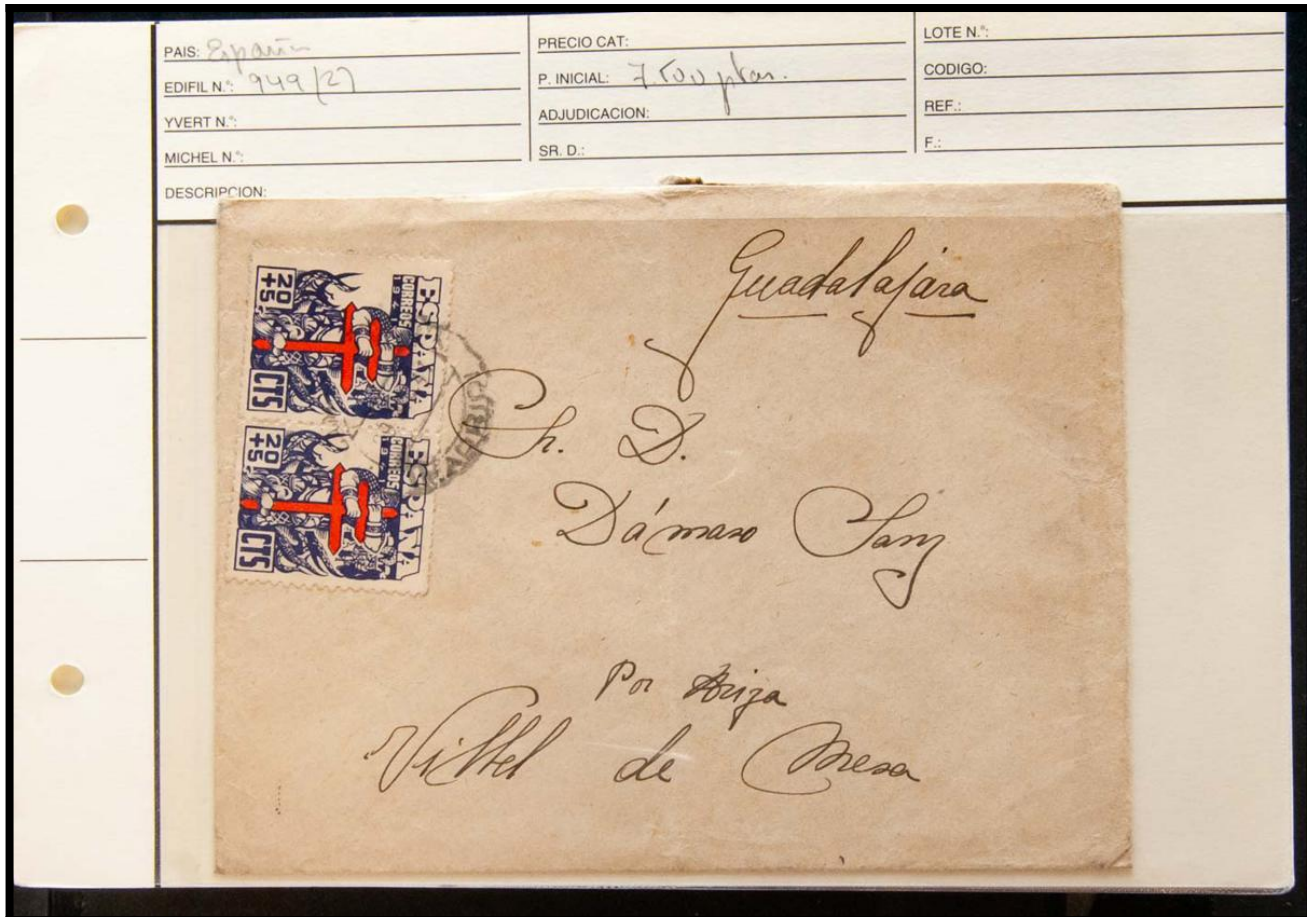 PAIS: España
EDIFIL N.º: 949 (2)
YVERT N.º:
MICHEL N.º:
DESCRIPCION:
PRECIO CAT:
P. INICIAL: 7.500 ptas.
ADJUDICACION:
SR. D.:
LOTE N.º:
CODIGO:
REF.:
F.:
ESPAÑA
CORREOS
1941
20
+5
CTS
ESPAÑA
CORREOS
1941
20
+5
CTS
Guadalajara
Sr. D.
Dámaso Sanz
Por Ariza
Villel de Mesa